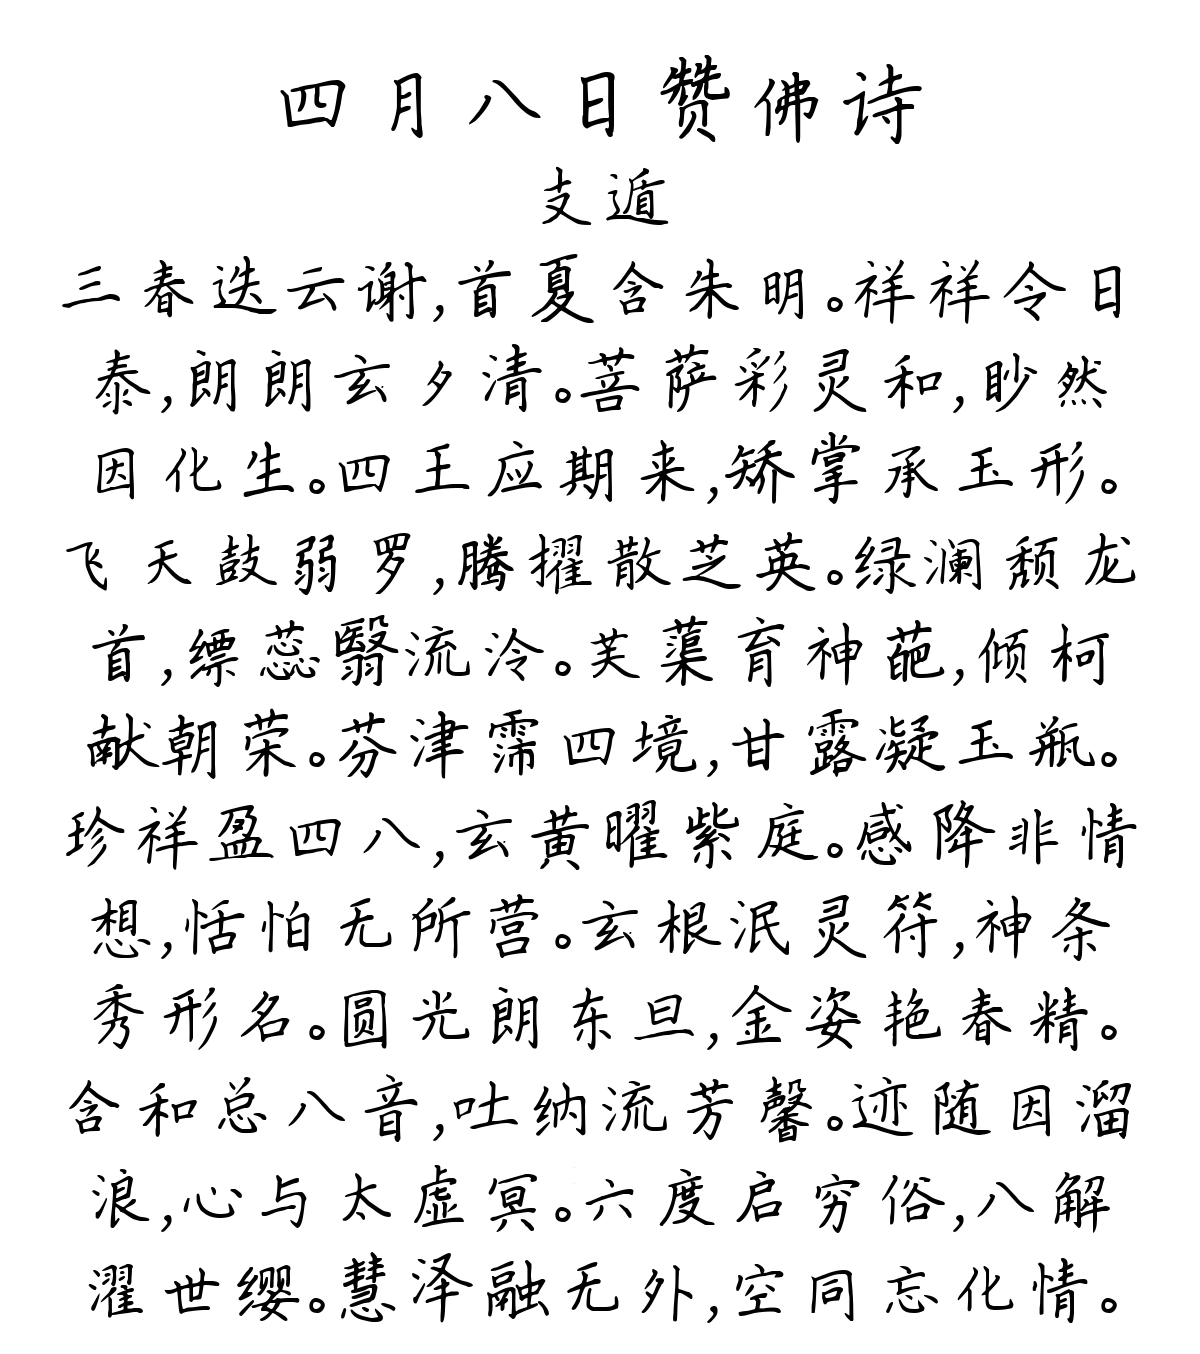 四月八日赞佛诗
支遁
三春迭云谢,首夏含朱明。祥祥令日
泰,朗朗玄夕清。菩萨彩灵和,眇然
因化生。四王应期来,矫掌承玉形。
飞天鼓弱罗,腾擢散芝英。绿澜颓龙
首,缥蕊翳流泠。芙蕖育神葩,倾柯
献朝荣。芬津霈四境,甘露凝玉瓶。
珍祥盈四八,玄黄曜紫庭。感降非情
想,恬怕无所营。玄根泯灵符,神条
秀形名。圆光朗东旦,金姿艳春精。
含和总八音,吐纳流芳馨。迹随因溜
浪,心与太虚冥。六度启穷俗,八解
濯世缨。慧泽融无外,空同忘化情。